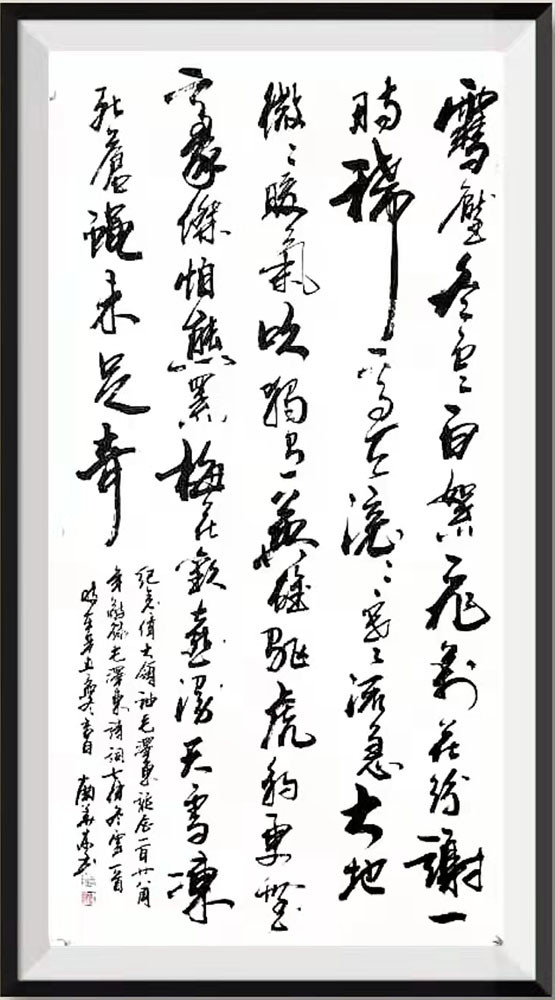 雪壓冬雲白絮飛万花紛謝一
時稀高天滾〻寒流急大地
微〻暖氣吹獨有英雄驅虎豹更無
豪傑怕熊羆梅花歡喜漫天雪凍
死蒼蠅未足奇
紀念偉大領袖毛澤東誕辰一百廿八周
年敬録毛澤東詩詞七律冬雲一首
時在辛丑冬吉日